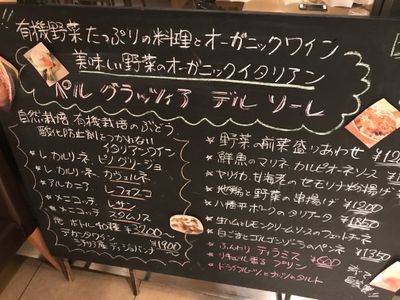 有機野菜たっぷりの料理とオーガニックワイン
美味しい野菜のオーガニックイタリアン
ペル グラッツィア デル ソーレ
自然栽培 有機栽培のぶどう
酸化防止剤をつかわない
イタリアンワイン
★レカルリーネ ピノグリージョ
★レカルリーネ カヴェルネ
★アルカニア レフォスコ
★メニコッチ レサン
★メニコッチ スタムノス
他 ボトル40種 ¥3200〜
デカンタワイン ¥1900〜
★野菜の前菜盛りあわせ
★鮮魚のマリネ カルピオーネソース
★ヤリイカ、甘海老のセモリナ粉揚げ
★地鶏と野菜の串揚げ ¥1200
★八幡平ポークのタリアータ ¥1850
★生ハムとレモンクリームソースのフェットチーネ
★白ごまとゴルゴンゾーラのペンネ ¥1350
★ふんわり ティラミス ¥600
★リキュール香る プリン
★ドライフルーツとナッツのタルト